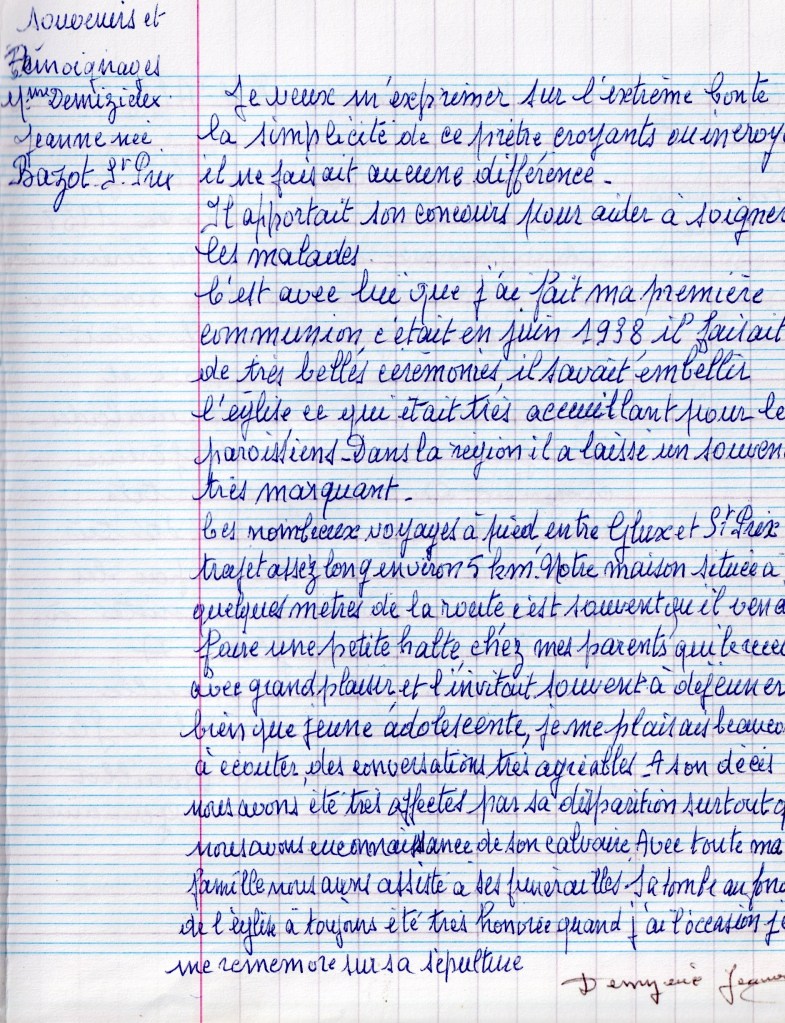 Souvenirs et
Témoignages
Mme Demizieux
Jeanne née
Bazot St. Prix
Je veux m'exprimer sur l'extrème bonte
la simplicité de ce prêtre croyants ou incroy
il ne faisait aucune différence.
Il apportait son concours pour aider à soigner
les malades.
C'est avec lui que j'ai fait ma première
communion, c'était en juin 1938 il faisait
de très belles cérémonies, il savait embellir
l'église, ce qui était très accueillant pour le
paroissiens. Dans la région il a laissé un souven
très marquant.
Ces nombreux voyages à pied, entre Glux et St Prix
trajet assez long environ 5 km. Notre maison située à
quelques mètres de la route c'est souvent qu'il ven
faire une petite halte, chez mes parents qui le rece
avec grand plaisir et l'invitait souvent à déjeuner
bien que jeune adolescente, je me plaisais beauco
à écouter, des conversations, très agréables. A son décès
nous avons été très affectés par sa disparition surtout q
nous avons eu connaissance de son calvaire, Avec toute ma
famille nous avons assisté à ses funérailles. Sa tombe au fon
de l'église à toujours été très honorée quand j'ai l'occasion je
me rememore sur sa sépulture